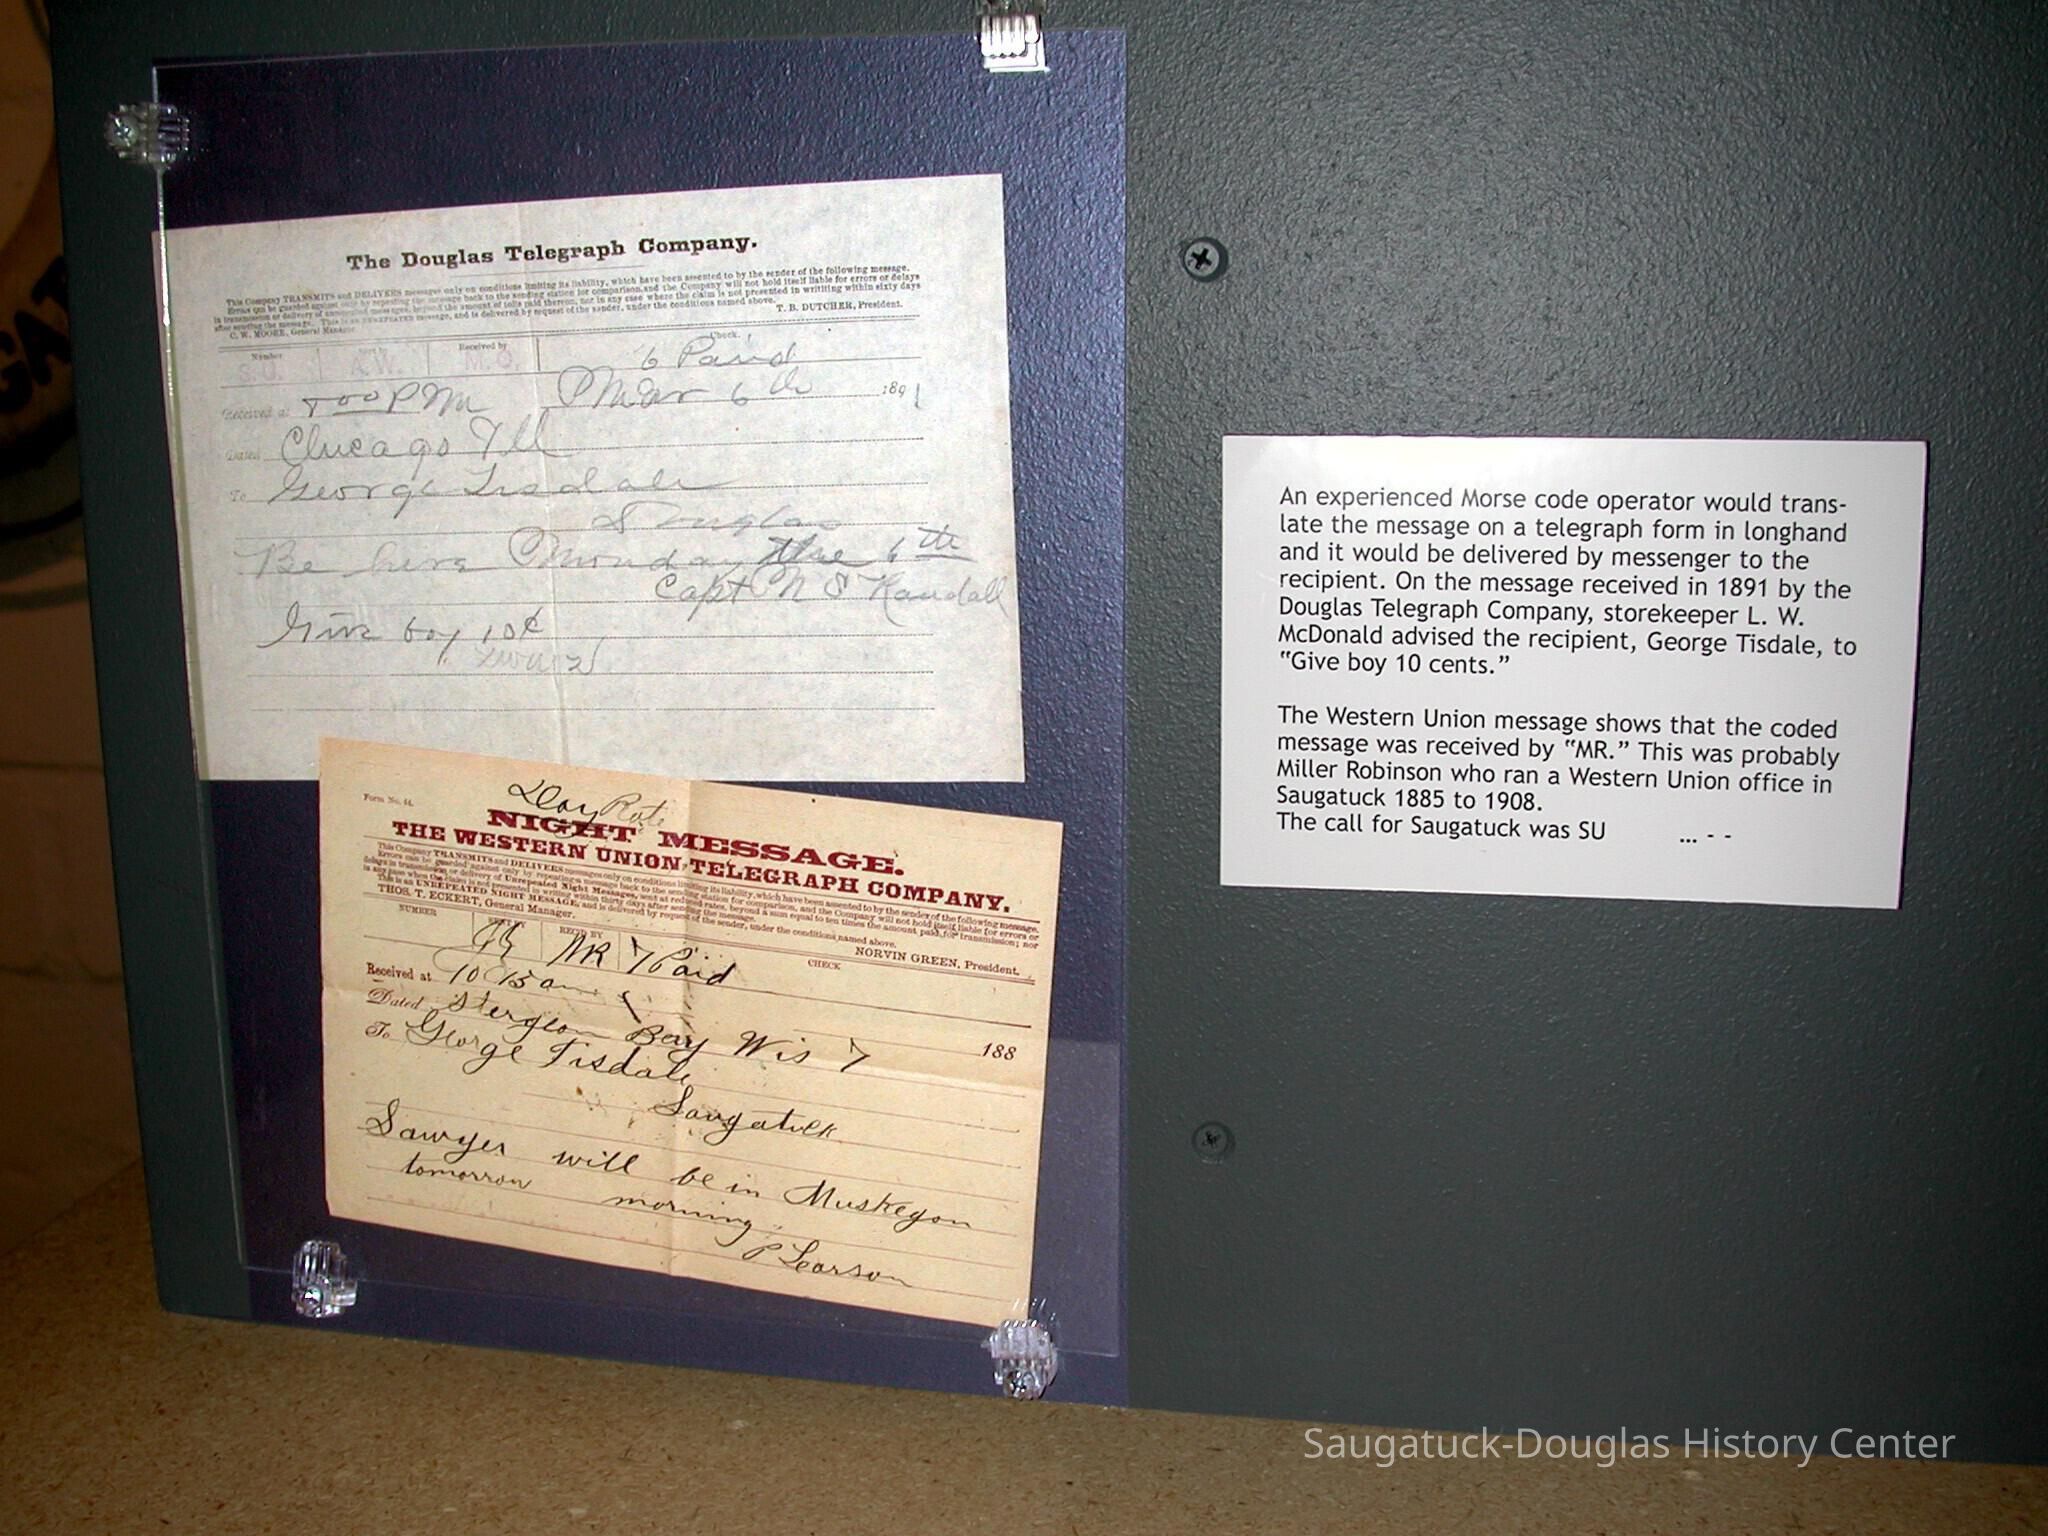 The Douglas Telegraph Company.
This Company TRANSMITS and DELIVERS messages only on conditions limiting its liability, which have been assented to by the sender of the following message.
Errors can be guarded against only by repeating the message back to the sending station for comparison, and the Company will not hold itself liable for errors or delays
in transmission or delivery of unrepeated messages, beyond the amount of tolls paid thereon, nor in any case where the claim is not presented in writing within sixty days
after sending the message. This is an UNREPEATED message, and is delivered by request of the sender, under the conditions named above.
C. W. MOORE, General Manager
T. B. DUTCHER, President.
Number
Sent by
Received by
Check.
S.U.
A.W.
M.O.
6 Paid
Received at
00 PM Mar 6th 1891
Dated Chicago Ill
To George Tisdale
Douglas
Be here Monday the 6th
Capt N S Randall
Give boy 10¢
Day Rate
Form No. 44.
NIGHT MESSAGE.
THE WESTERN UNION TELEGRAPH COMPANY.
This Company TRANSMITS and DELIVERS messages only on conditions limiting its liability, which have been assented to by the sender of the following message.
Errors can be guarded against only by repeating a message back to the sending station for comparison, and the Company will not hold itself liable for errors or
delays in transmission or delivery of Unrepeated Night Messages, sent at reduced rates, beyond a sum equal to ten times the amount paid for transmission; nor
in any case when the claim is not presented in writing within thirty days after sending the message.
This is an UNREPEATED NIGHT MESSAGE, and is delivered by request of the sender, under the conditions named above.
THOS. T. ECKERT, General Manager.
NORVIN GREEN, President.
NUMBER
SENT BY
REC'D BY
CHECK
MR 7 Paid
Received at 10 15 am
Dated Stergeon Bay Wis 7 188
To George Tisdale
Saugatuck
Sawyer will be in Muskegon
tomorrow morning.
P Learson
An experienced Morse code operator would trans-
late the message on a telegraph form in longhand
and it would be delivered by messenger to the
recipient. On the message received in 1891 by the
Douglas Telegraph Company, storekeeper L. W.
McDonald advised the recipient, George Tisdale, to
“Give boy 10 cents.”
The Western Union message shows that the coded
message was received by “MR.” This was probably
Miller Robinson who ran a Western Union office in
Saugatuck 1885 to 1908.
The call for Saugatuck was SU ... - -
Saugatuck-Douglas History Center